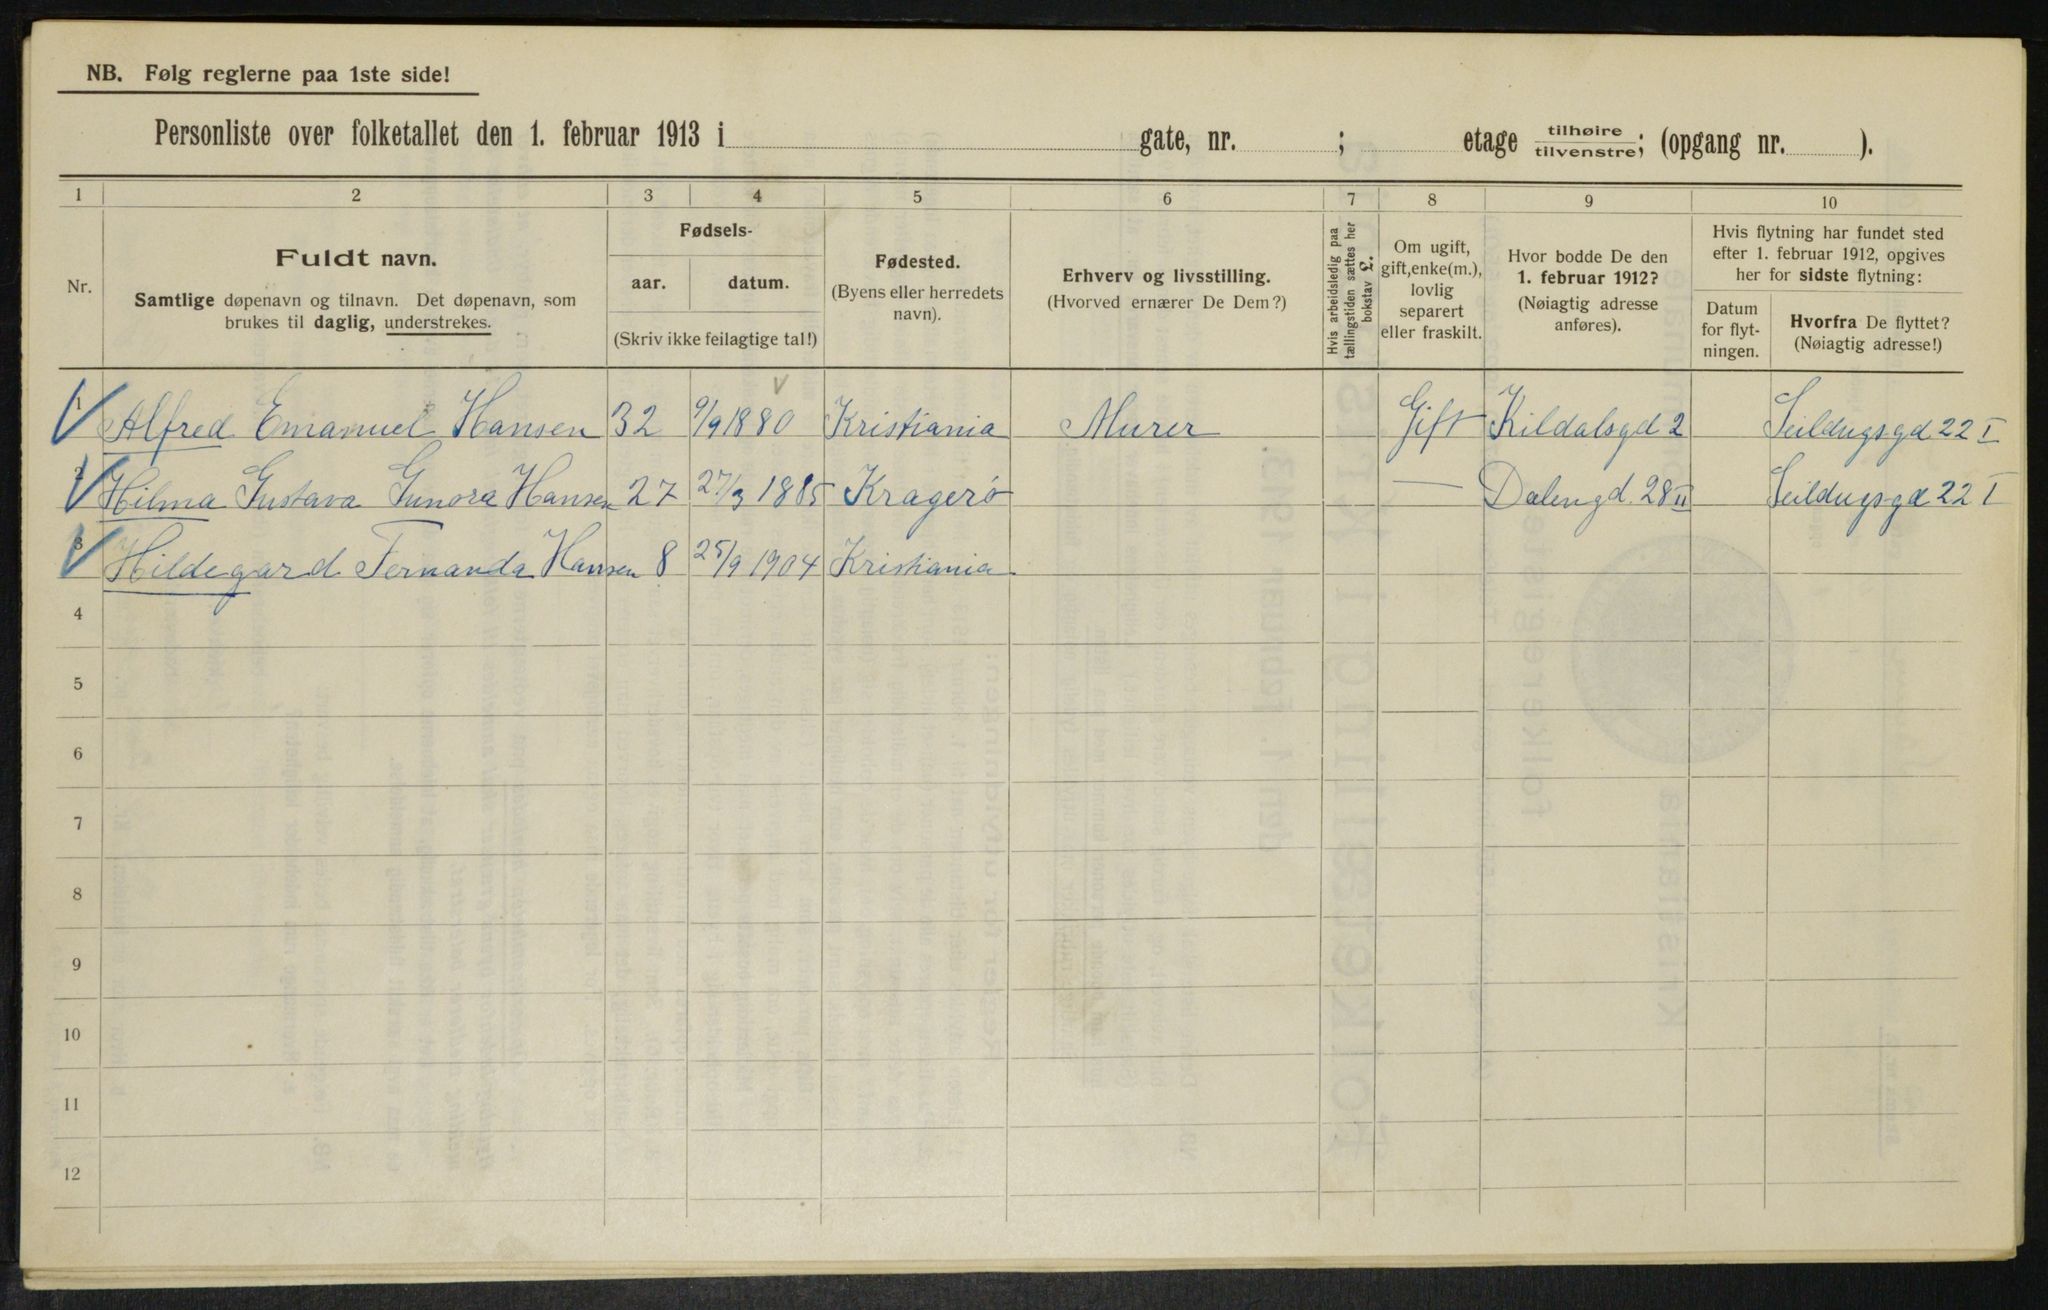 NB. Følg reglerne paa 1ste side!
Personliste over folketallet den 1. februar 1913 i gate, nr. ; etage tilhøire/tilvenstre; (opgang nr. ).
1 2 3 4 5 6 7 8 9 10
Nr.
Fuldt navn.
Samtlige døpenavn og tilnavn. Det døpenavn, som
brukes til daglig, understrekes.
Fødsels-
aar. datum.
(Skriv ikke feilagtige tal!)
Fødested.
(Byens eller herredets
navn).
Erhverv og livsstilling.
(Hvorved ernærer De Dem?)
Hvis arbeidsledig paa
tællingstiden sættes her
bokstav £.
Om ugift,
gift, enke(m.),
lovlig
separert
eller fraskilt.
Hvor bodde De den
1. februar 1912?
(Nøiagtig adresse
anføres).
Hvis flytning har fundet sted
efter 1. februar 1912, opgives
her for sidste flytning:
Datum
for flyt-
ningen.
Hvorfra De flyttet?
(Nøiagtig adresse!)
1 Alfred Emanuel Hansen 32 9/9 1880 Kristiania Murer Gift Kildalsgd 2 Seildugsgd 22 I
2 Hilma Gustava Gunora Hansen 27 27/3 1885 Kragerö — Dalengd. 28 II Seildugsgd 22 I
3 Hildegard Fernanda Hansen 8 25/9 1904 Kristiania
4
5
6
7
8
9
10
11
12